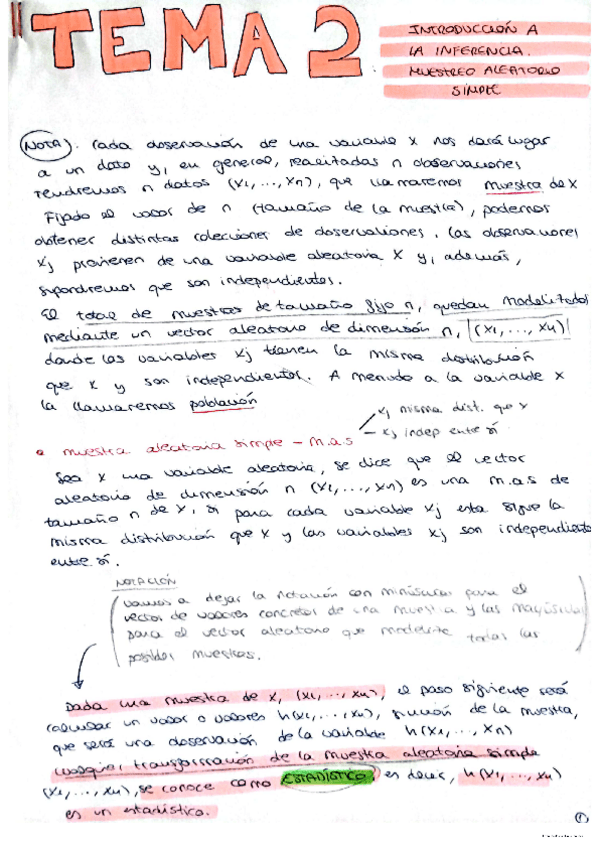 TEMA 2
INTRODUCCIÓN A
LA INFERENCIA.
MUESTREO ALEATORIO
SIMPLE
NOTA: Cada observación de una variable X nos dará lugar
a un dato y, en general, realizadas n observaciones
tendremos n datos (x1,...,xn), que llamaremos muestra de X
Fijado el valor de n (tamaño de la muestra), podemos
obtener distintas colecciones de observaciones. Las observaciones
xj provienen de una variable aleatoria X y, además,
supondremos que son independientes.
El total de muestras de tamaño fijo n, quedan modelizadas
mediante un vector aleatorio de dimensión n, (X1,...,Xn)
donde las variables Xj tienen la misma distribución
que X y son independientes. A menudo a la variable X
la llamaremos población
• muestra aleatoria simple - m.a.s
xj misma dist. que X
xj indep entre sí
Sea X una variable aleatoria, se dice que el vector
aleatorio de dimensión n (X1,...,Xn) es una m.a.s de
tamaño n de X, si para cada variable Xj esta sigue la
misma distribución que X y las variables Xj son independiente
entre sí.
NOTACIÓN
Vamos a dejar la notación con minúsculas para el
vector de valores concretos de una muestra y las mayúscula
para el vector aleatorio que modelice todas las
posibles muestras.
Dada una muestra de X, (x1,...,xn), el paso siguiente será
calcular un valor o valores h(x1,...,xn), función de la muestra,
que será una observación de la variable h(X1,..., Xn)
Cualquier transformación de la muestra aleatoria simple
(X1,...,Xn), se conoce como ESTADÍSTICO, es decir, h(X1,...,Xn)
es un estadístico.
1